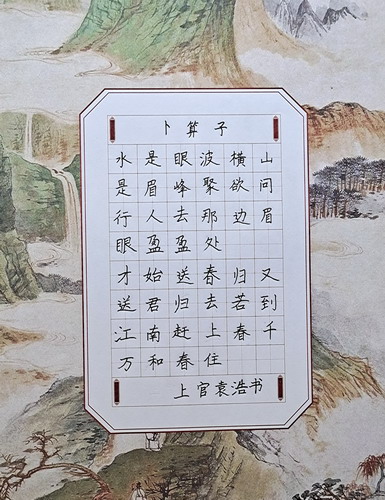 卜算子
水是眼波横山
是眉峰聚欲问
行人去那边眉
眼盈盈处
才始送春归又
送君归去若到
江南赶上春千
万和春住
上官袁浩书